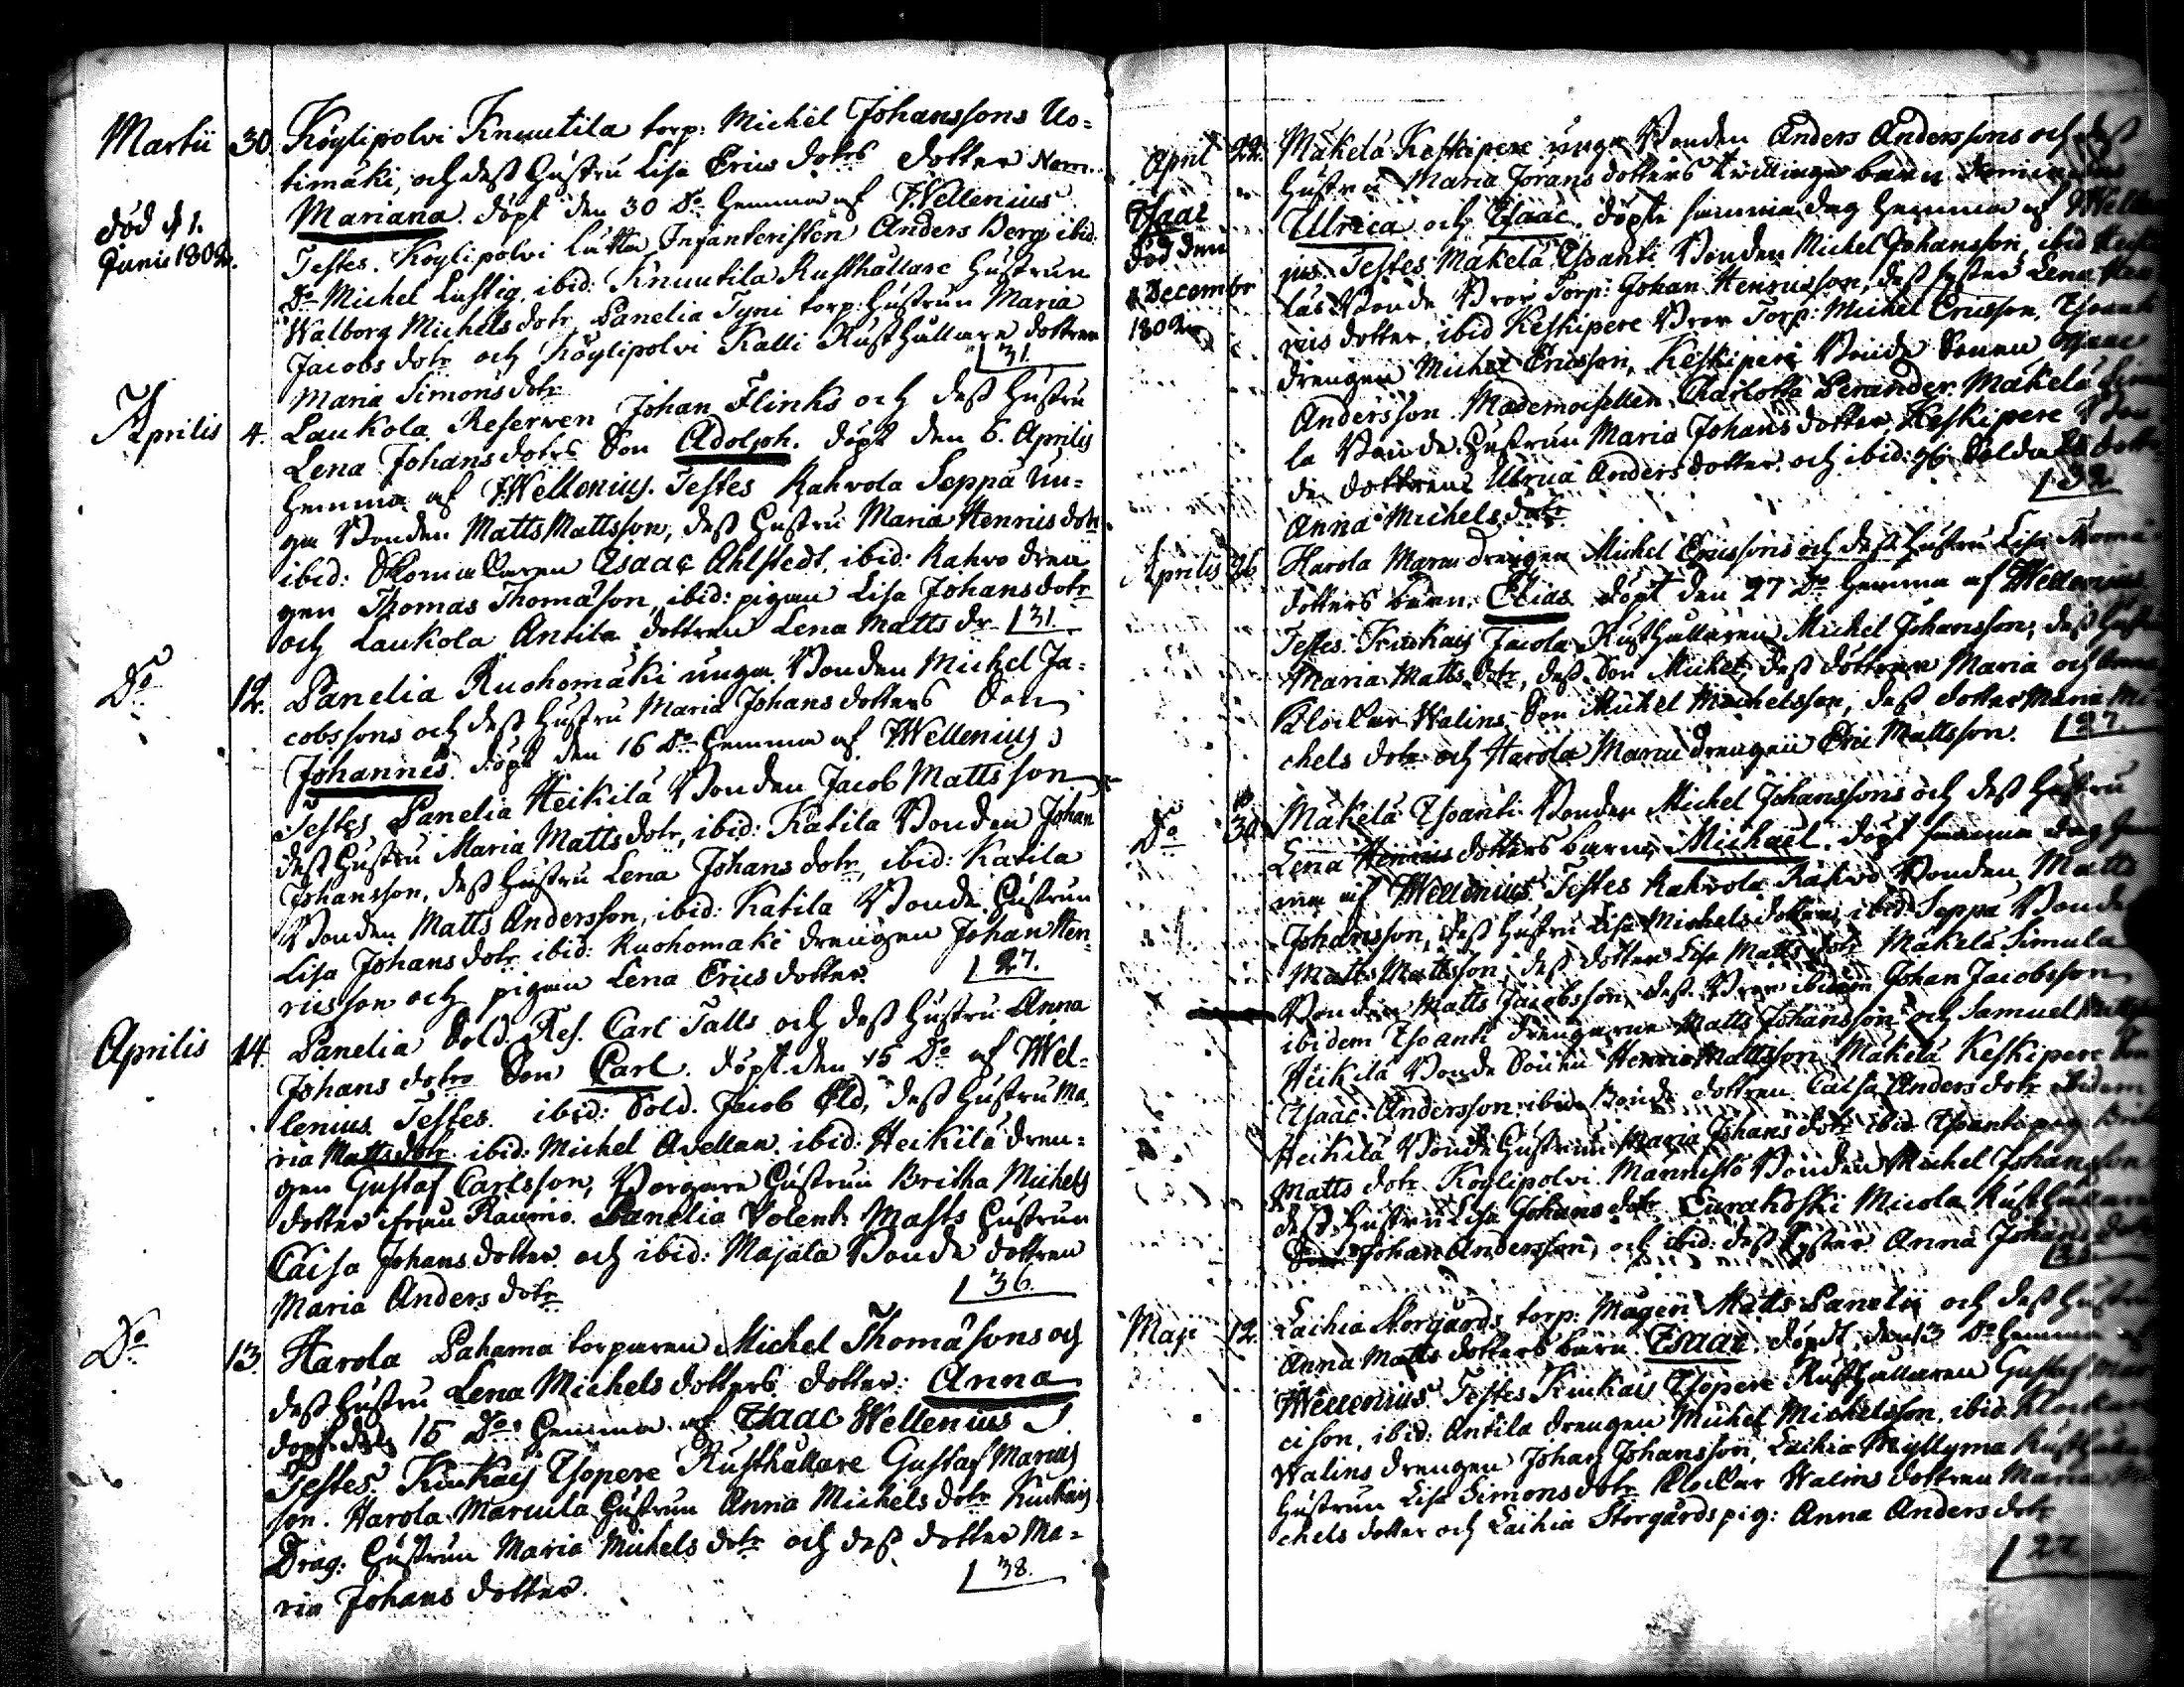 Martii 30. Köylipolvi Knuutila torp: Michel Johanssons Uo=
timäki, och dess Hustru Lisa Erics dotrs dotter Nom.
Mariana. döpt den 30 Do hemma af JWellenius
död d 1.
Junii 1802.
Testes. Köylipolvi Lutta Infanteristen Anders Berg ibid:
Do Michel Lustig, ibid: Knuutila Rusthållare Hustrun
Walborg Michelsdotr, Panelia Tyni torp: Hustrun Maria
Jacobs dotr och Köylipolvi Kalli Rusthållare dottren
Maria Simonsdotr 31.
Aprilis 4. Laukola Reserven Johan Flinks och dess Hustru
Lena Johansdotrs Son Adolph. döpt den 6. Aprilis
hemma af JWellenius. Testes Kahvola Seppä Un=
ga Bonden Matts Mattsson, dess Hustru Maria Henricsdotr.
ibid: Skomakaren Isaac Ahlstedt, ibid: Rahvo dren
gen Thomas Thomæson, ibid: pigan Lisa Johansdotr
och Laukola Antila dottren Lena Matts dr. 31.
Do 12. Panelia Ruohomäki unga Bonden Michel Ja=
cobssons och dess Hustru Maria Johans dotters Son
Johannes. döpt den 16 Do hemma af JWellenius.
Testes Panelia Heikilä Bonden Jacob Mattsson
dess Hustru Maria Mattsdotr, ibid: Katila Bonden Johan
Johansson, dess Hustru Lena Johansdotr, ibid: Katila
Bonden Matts Andersson, ibid: Katila Bonde Hustrun
Lisa Johansdotr ibid: Ruohomäki drengen Johan Hen=
ricsson och pigan Lena Ericsdotter. 27.
Aprilis 14. Panelia Sold. Res. Carl Talls och dess Hustru Anna
Johans dotrs Son Carl. döpt den 15 Do af Wel=
lenius Testes. ibid: Sold. Jacob Eld, dess Hustru Ma,
ria Matts dotr ibid: Michel Avellan. ibid: Heikilä dren=
gen Gustaf Carlsson, Borgare Hustrun Britha Michels
dotter ifrån Raumo. Panelia Volent. Masts Hustrun
Caisa Johans dotter och ibid: Majala Bonde dottren
Maria Anders dotr 36.
Do 13. Harola Pahama torparen Michel Thomæsons och
dess Hustru Lena Michels dotters dotter: Anna
döpt den 15 Do hemma af Isaac Wellenius.
Testes. Kiukais Isopere Rusthållare Gustaf Marcus
son. Harola Marcula Hustrun Anna Michels dotr Kiukais
Drag: Hustrun Maria Michels dotr och dess dotter Ma=
ria Johans dotter. 38.
April 22. Mäkelä Keskipere unge Bonden Anders Anderssons och dess
Hustru Maria Jörans dotters twillinge barn
Isaac
död den
Decembr
1802
Ulrica och Isaac. döpte samma dag hemma af JWelle
jus. Testes Mäkelä Isoanti Bonden Michel Johansson, ibid
läs Bonde Bror Torp: Johan Henricsson, dess syster Lena Hen
rics dotter, ibid Keskipere Bror Torp: Michel Ericsson, Isoanti
drengen Michel Ericsson, Keskipere Bonde Sonen Isaac
Andersson. Mademoisellen Charlotta Perander. Mäkelä Simu
la Bonde Hustrun Maria Johans dotter, Keskipere Bon
de dottren Ulrica Anders dotter. och ibid: Soldate dotter
Anna Michelsdotr 32
Aprilis 26 Harola Marcu drengen Michel Ericssons och dess Hustru Lisa Thomæ
dotters barn. Elias döpt den 27 Do hemma af Wellenius
Testes. Kiukais Jacola Rusthållaren Michel Johansson, dess Hustru
Maria Matts Dotr, dess Son Michel, dess dottren Maria och Anna
Klockar Walins Son Michel Michelsson, dess dotter Maria Mi
chels dotr och Harola Marcu drengen Eric Mattsson. 27.
Do 30. Mäkelä Isoanti Bonden Michel Johanssons och dess Hustru
Lena Henrics dotters barn, Michael. döpt samma dag hem
ma af Wellenius. Testes Kahvola Rahvo Bonden Matts
Johansson, dess Hustru Lisa Michels dotter, ibid: Seppä Bonde
Matts Mattsson, dess dotter Lisa Matts dotr Mäkelä Simula
Bonden Matts Jacobsson, dess Bror ibidem Johan Jacobsson
ibidem Isoanti drengarne Matts Johansson och Samuel Matts
Heikilä Bonde Sonen Henric Mattsson Mäkelä Keskipere Son
Isaac Andersson, ibid: Bonde dottren Caisa Anders dotr ibidem
Heikilä Bonde Hustrun Maria Johans dotr ibid: Isoanti pig.
Matts dotr Köylipolvi Mannistö Bonden Michel Johansson
dess Hustru Lisa Johans dotr Eurakoski Micola Rusthållare
Son Johan Andersson, och ibid: dess Syster Anna Johans dotr
Maji 12. Laihia Storgårds torp: Mågen Matts Panelii och dess Hustru
Anna Matts dotters barn. Isaac. döpt den 13 Do hemma af
Wellenius Testes Kiukais Isopere Rusthållaren Gustaf Mar
cison, ibid: Antila drengen Michel Michelsson, ibid: Klockar
Walins drengen Johan Johansson, Laihia Myllymä Rusthållar
Hustrun Lisa Simons dotr Klockar Walins dottren Maria Mi
chels dotter och Laihia Storgårds pig: Anna Anders dotr
22